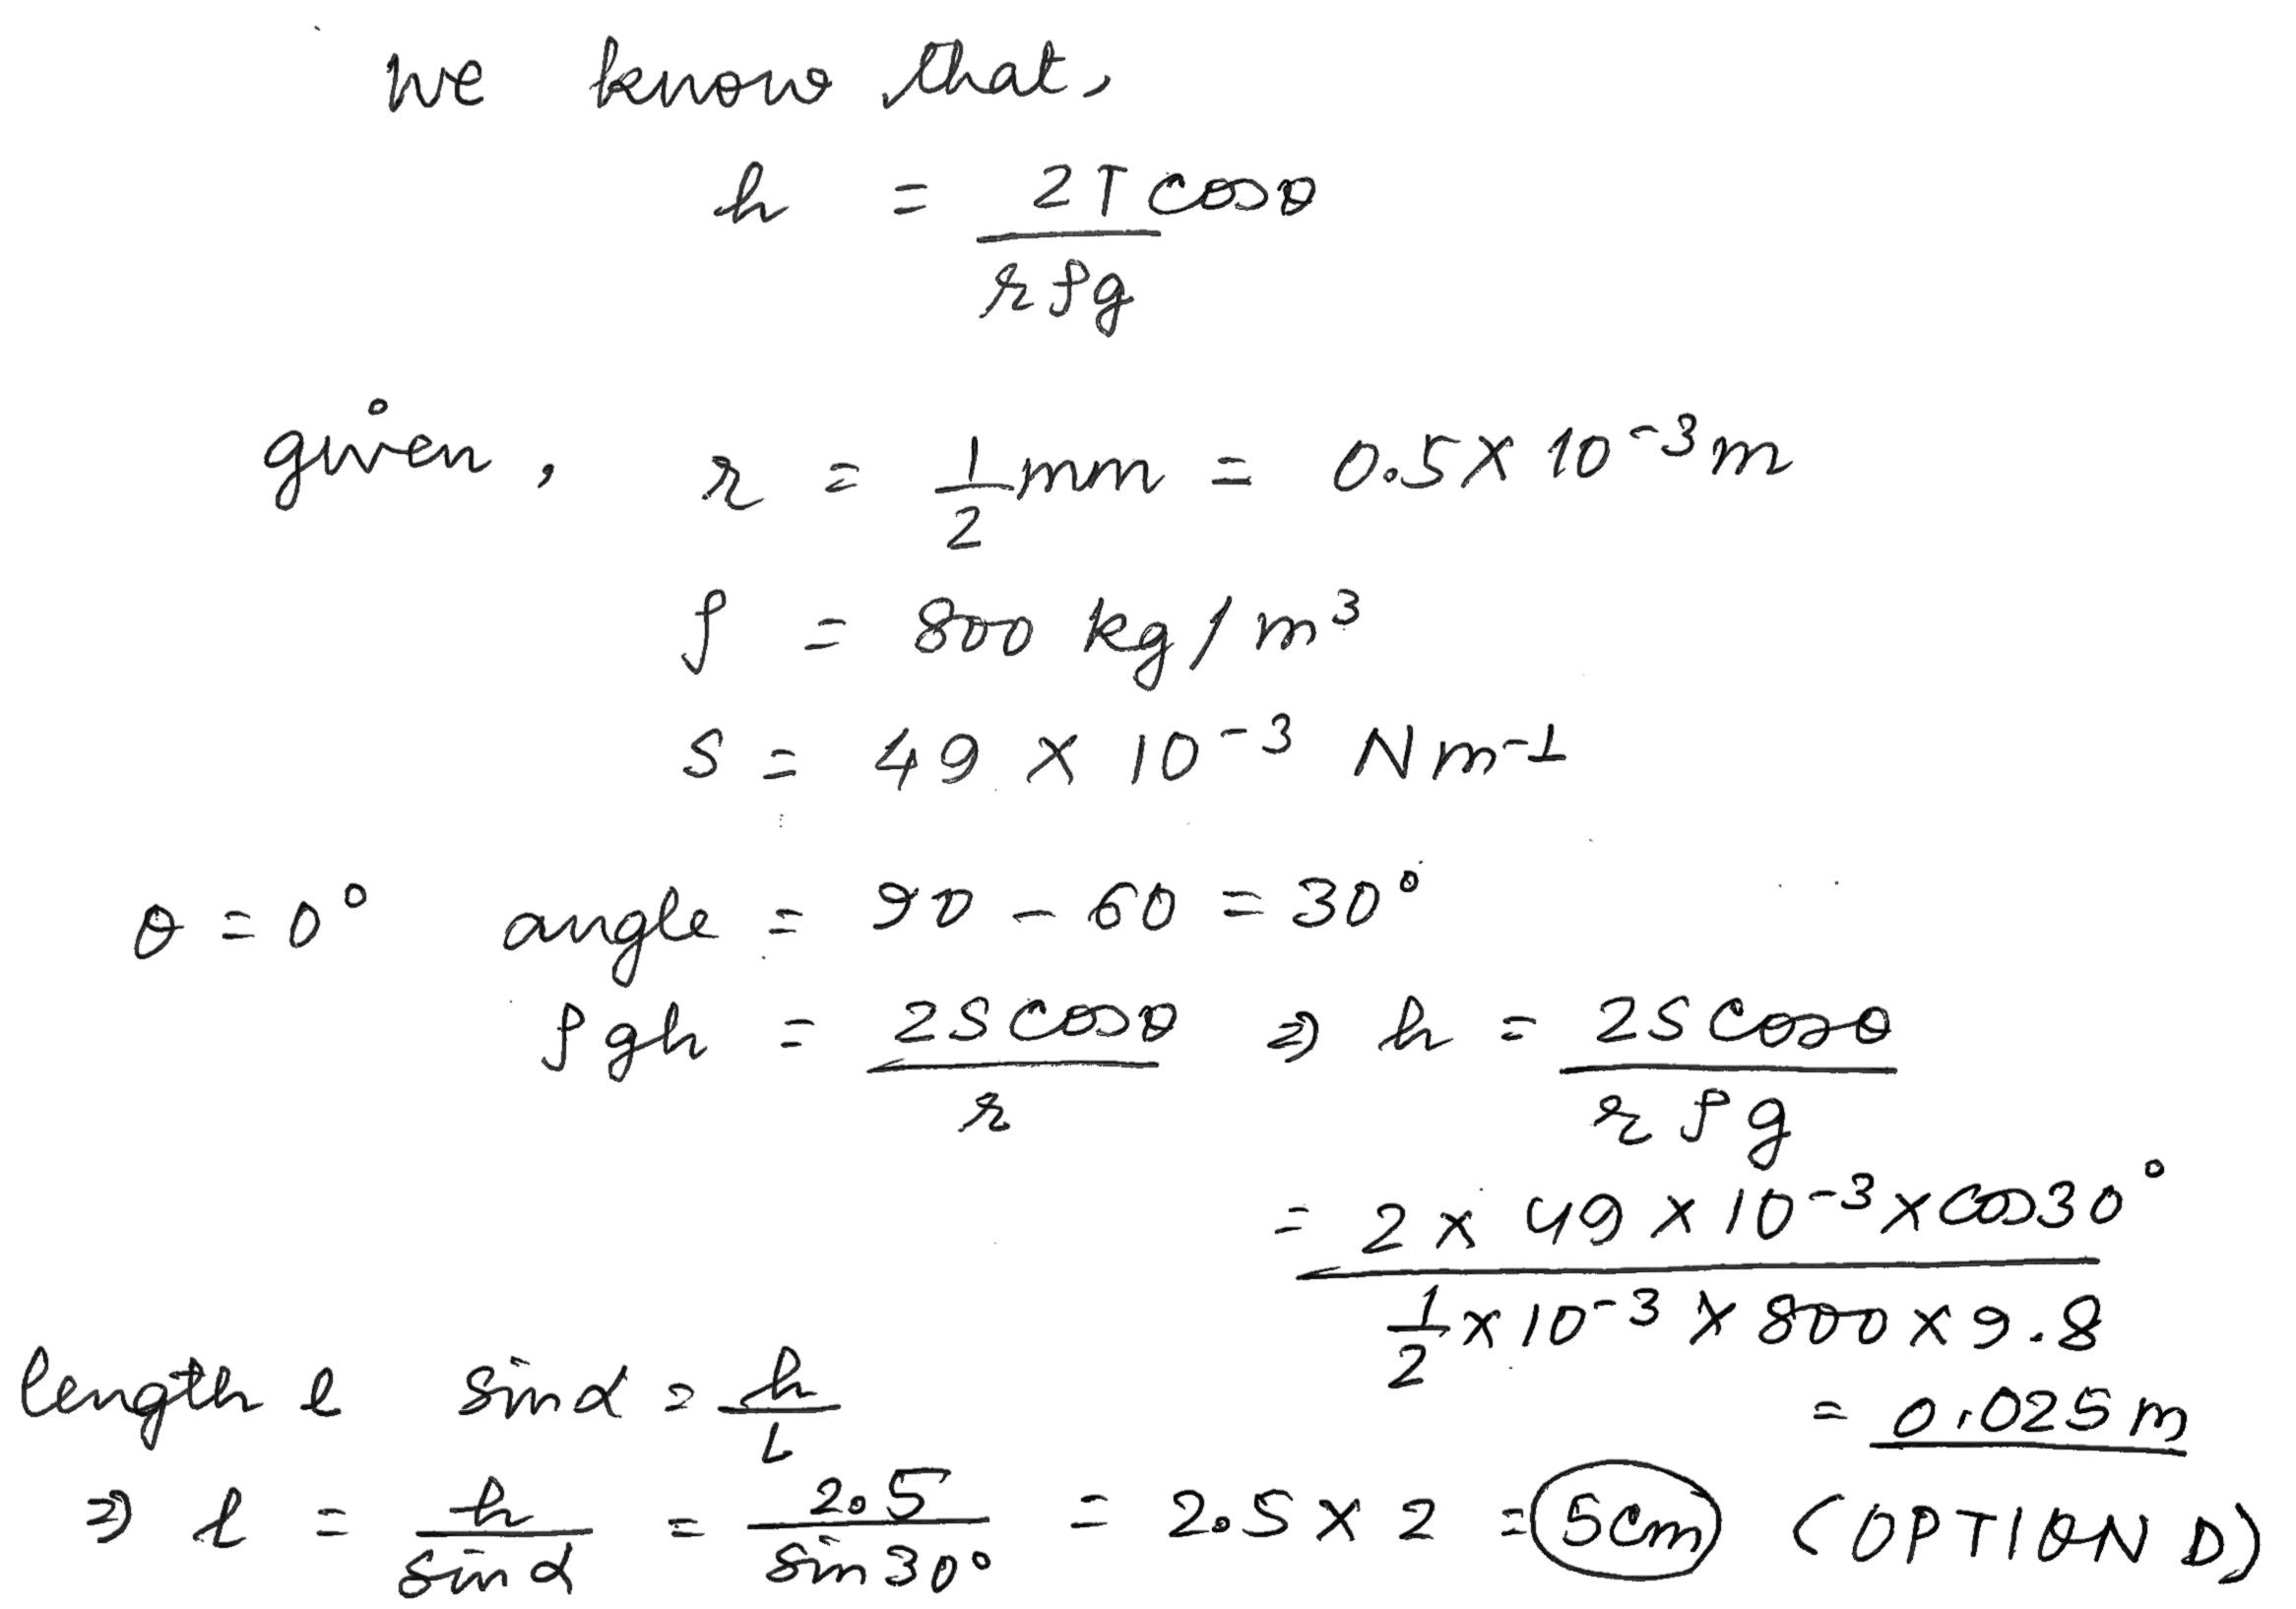 we know that,
h = 2T cosθ / rρg
given, r = 1/2 mm = 0.5 X 10⁻³ m
ρ = 800 kg/m³
S = 49 X 10⁻³ Nm⁻¹
θ = 0° angle = 90 - 60 = 30°
ρgh = 2S cosθ / r ⇒ h = 2S cosθ / rρg
= 2 x 49 x 10⁻³ x cos30° / 1/2 x 10⁻³ x 800 x 9.8
= 0.025 m
length l sinα = h / L
⇒ l = h / sinα = 2.5 / sin30° = 2.5 X 2 = 5cm (OPTION D)